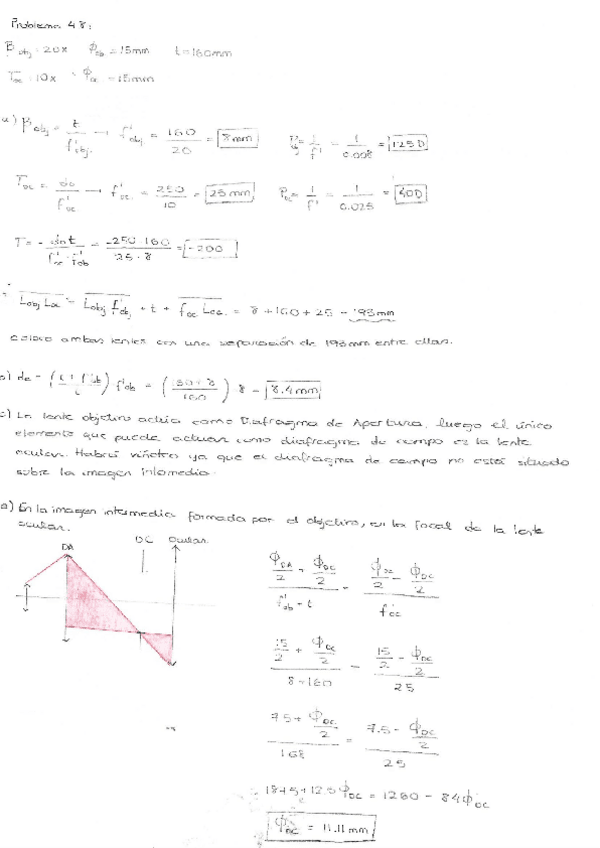 Problema 48:
β obj = 20x ϕ ob = 15mm t = 160mm
T oc = 10x ϕ oc = 15mm
a) β obj = t / f' obj. → f' obj. = 160 / 20 = 8mm P obj = 1 / f' = 1 / 0.008 = 125D
T oc = do / f' oc → f' oc. = 250 / 10 = 25mm P oc = 1 / f' = 1 / 0.025 = 40D
T = - dn t / f' oc · f' ob = -250·160 / 25·8 = -200
L obj L oc = L obj f' obj + t + f oc L oc = 8 + 160 + 25 = 193mm
Coloco ambas lentes con una separación de 193mm entre ellas.
b) do = - ( t + f' ob / t ) f' ob = ( 160 + 8 / 160 ) 8 = 8.4mm
c) La lente objetivo actúa como Diafragma de Apertura, luego el único
elemento que puede actuar como diafragma de campo es la lente
ocular. Habrá viñeteo ya que el diafragma de campo no está situado
sobre la imagen intermedia.
d) En la imagen intermedia formada por el objetivo, en la focal de la lente
ocular.
DA DC Ocular
ϕ DA / 2 + ϕ DC / 2 / f' ob + t = ϕ oc / 2 - ϕ DC / 2 / f' oc
15 / 2 + ϕ DC / 2 / 8 + 160 = 15 / 2 - ϕ DC / 2 / 25
7.5 + ϕ DC / 2 / 168 = 7.5 - ϕ DC / 2 / 25
ϕ DC = 1260 - 84 ϕ DC
ϕ DC = 11.11mm